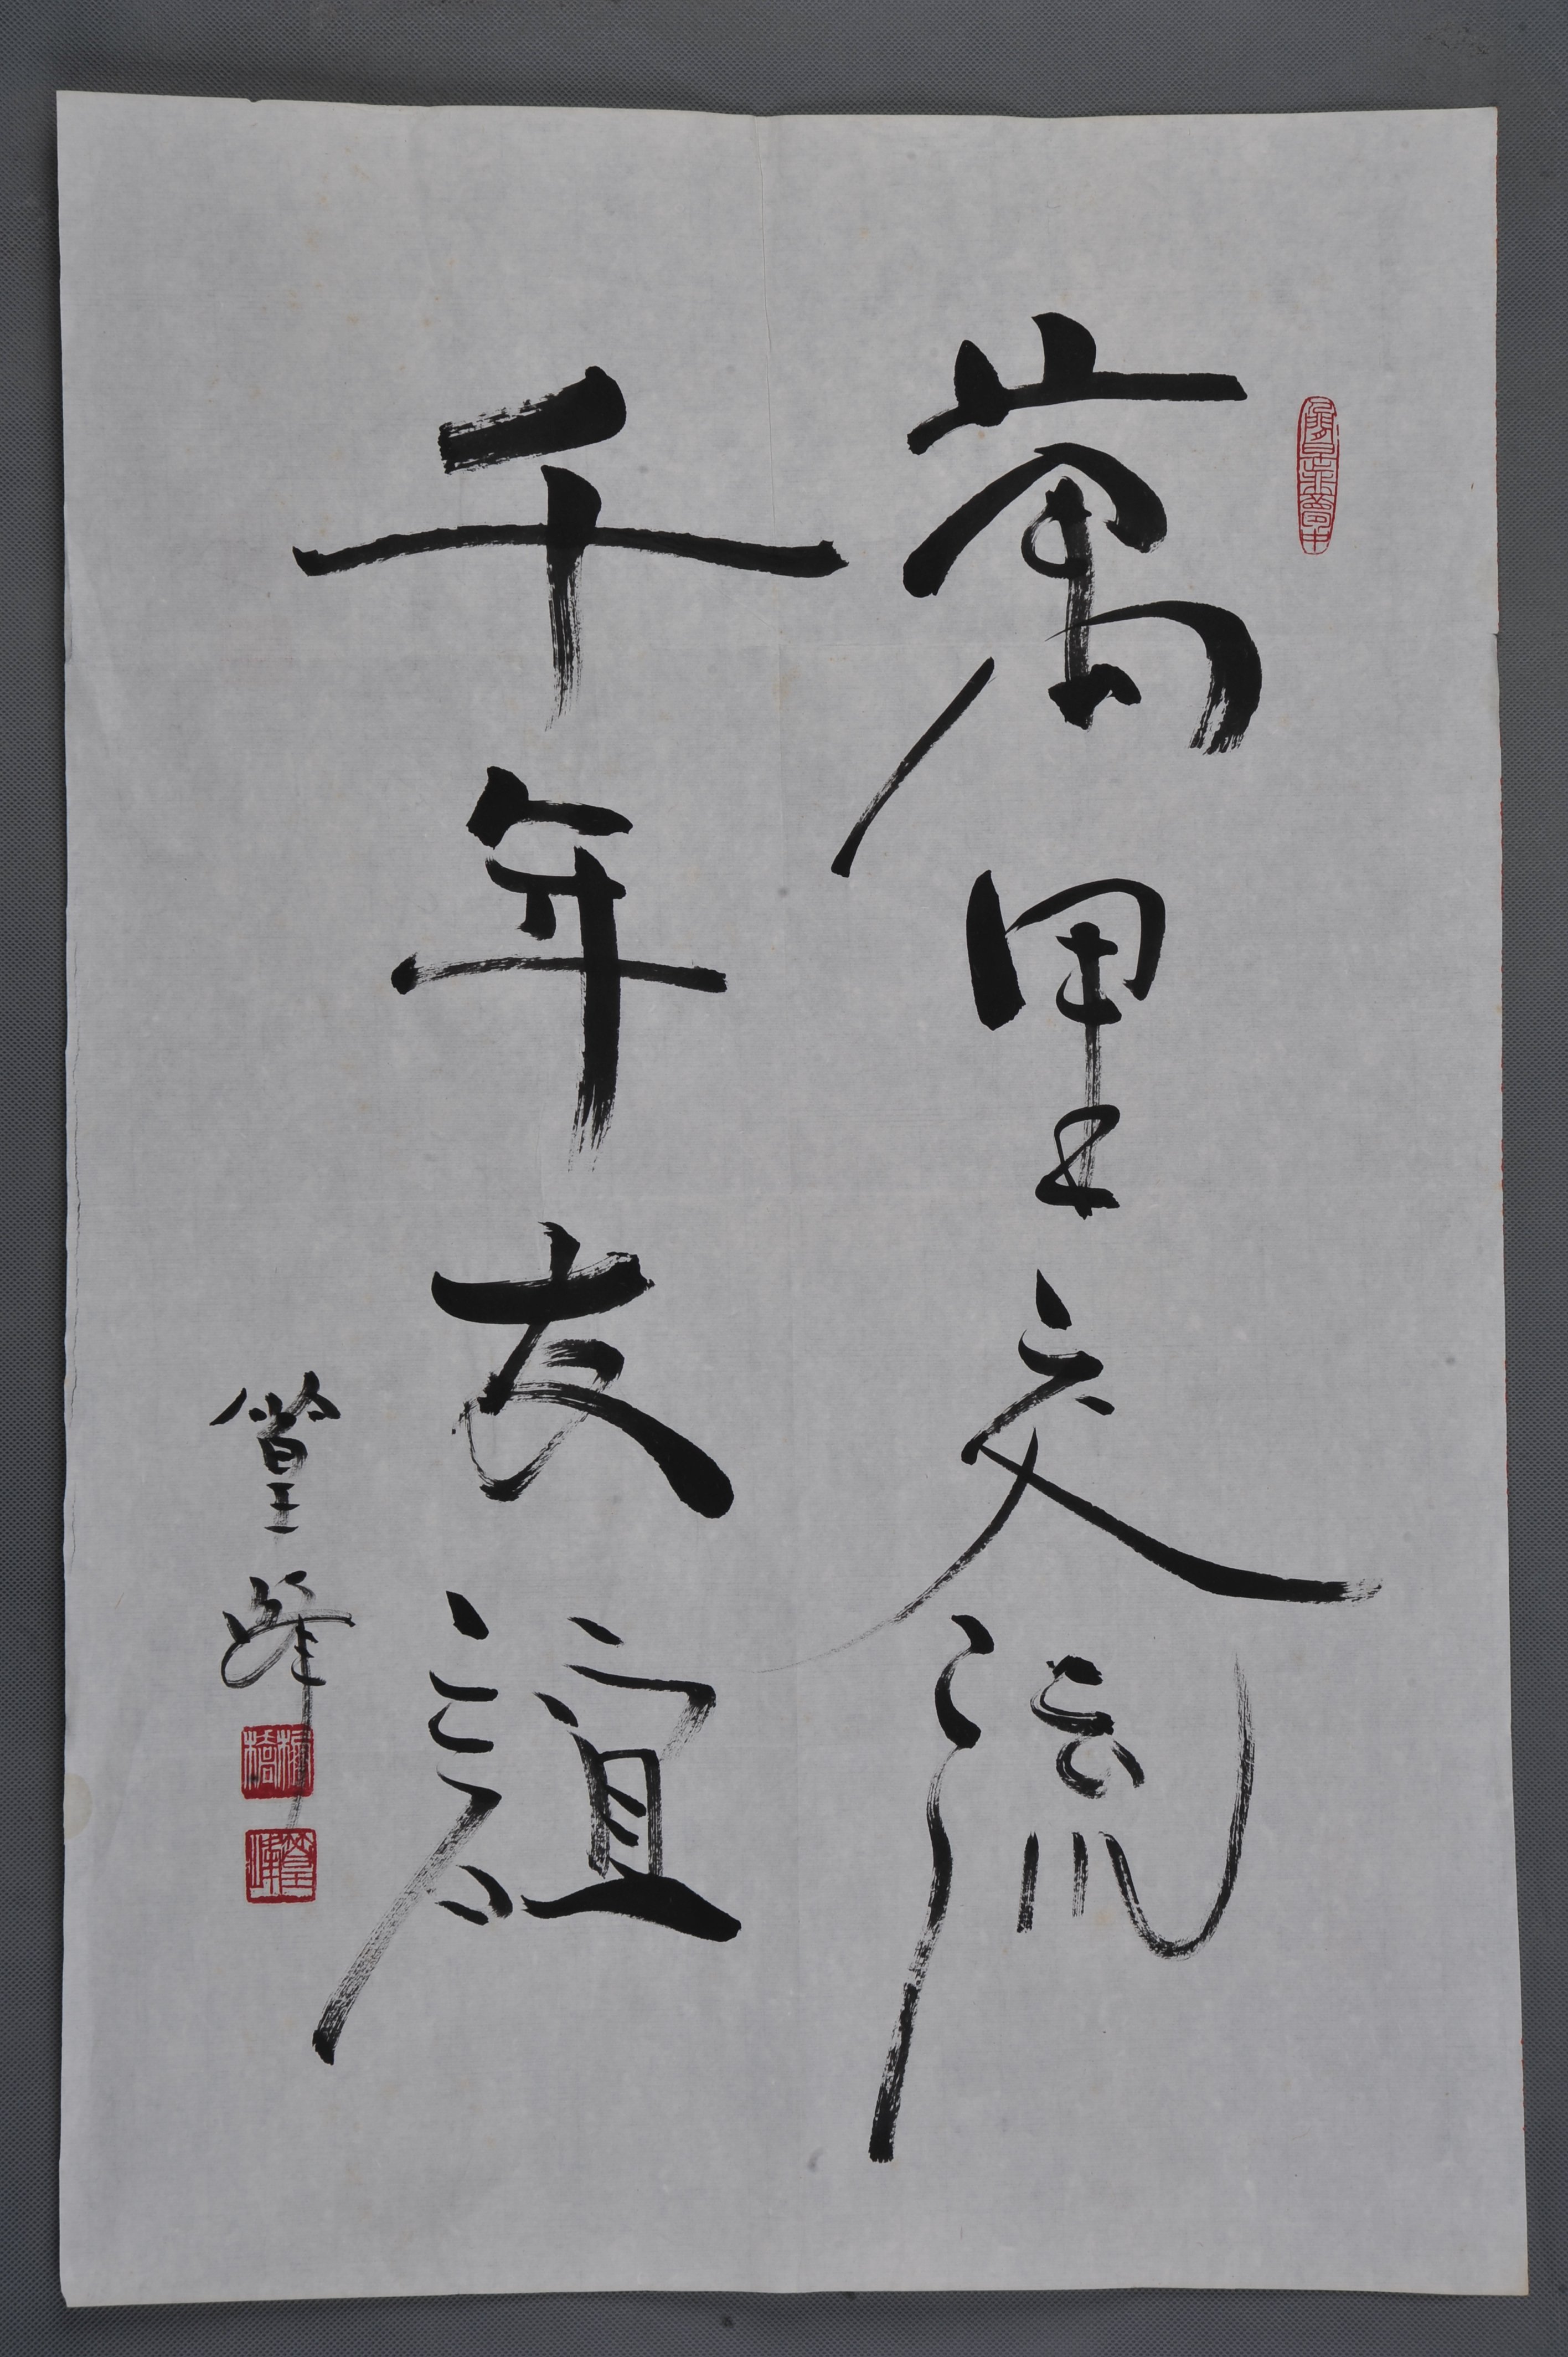 萬里交流
千年友誼
篁峰